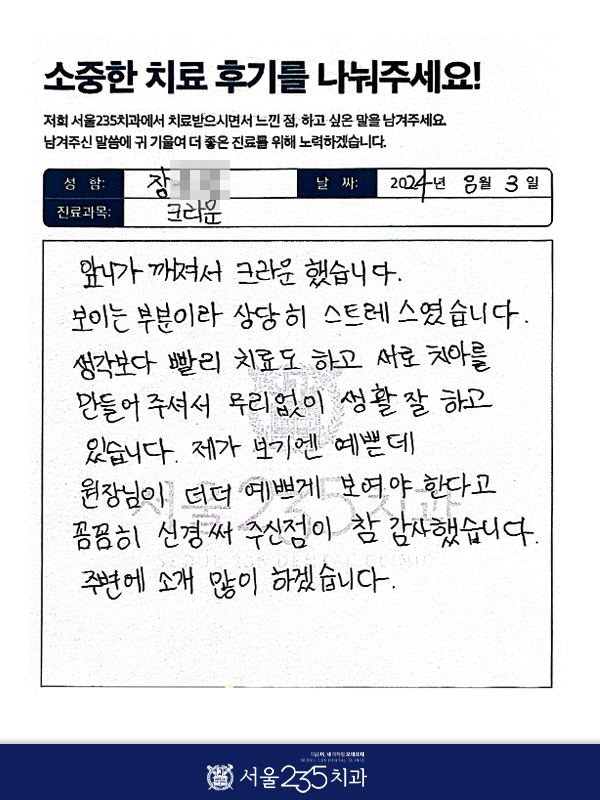 소중한 치료 후기를 나눠주세요!
저희 서울235치과에서 치료받으시면서 느낀 점, 하고 싶은 말을 남겨주세요.
남겨주신 말씀에 귀 기울여 더 좋은 진료를 위해 노력하겠습니다.
성 함: 장 날 짜: 2024년 8월 3일
진료과목: 크라운
앞니가 깨져서 크라운 했습니다.
보이는 부분이라 상당히 스트레스였습니다.
생각보다 빨리 치료도 하고 새로 치아를
만들어 주셔서 무리없이 생활 잘 하고
있습니다. 제가 보기엔 예쁜데
원장님이 더더 예쁘게 보여야 한다고
꼼꼼히 신경써 주신점이 참 감사했습니다.
주변에 소개 많이 하겠습니다.
서울235치과
SEOUL 235 DENTAL CLINIC
서울235치과